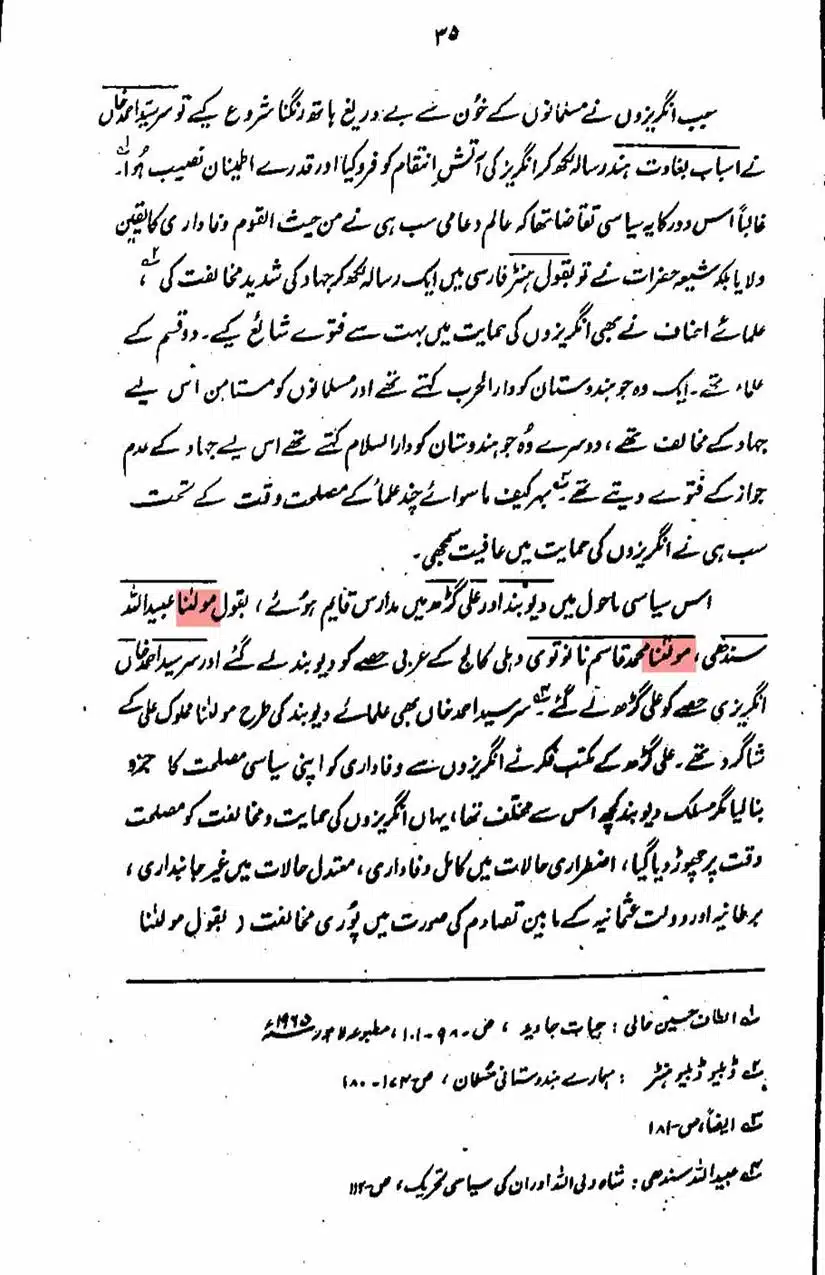 ۳۵
جب انگریزوں نے مسلمانوں کے خُون سے بے دریغ ہاتھ رنگنا شروع کیے تو سرسیّد احمد خاں
نے اسباب بغاوت ہند رسالہ لکھ کر انگریز کی آتشِ انتقام کو فرو کیا اور قدرے اطمینان نصیب ہُوا۔ ؎۱
غالباً اس دور کا یہ سیاسی تقاضا تھا کہ عالم و عامی سب ہی نے من حیث القوم وفاداری کا یقین
دلایا بلکہ شیعہ حضرات نے تو بقول ہنٹر فارسی میں ایک رسالہ لکھ کر جہاد کی شدید مخالفت کی ؎۲ ،
علمائے احناف نے بھی انگریزوں کی حمایت میں بہت سے فتوے شائع کیے۔ دو قسم کے
علماء تھے۔ ایک وہ جو ہندوستان کو دارالحرب کہتے تھے اور مسلمانوں کو مستامن اس لیے
جہاد کے مخالف تھے، دوسرے وُہ جو ہندوستان کو دارالسلام کہتے تھے اس لیے جہاد کے عدم
جواز کے فتوے دیتے تھے ؎۳ بہرکیف ماسوائے چند علماء کے مصلحت وقت کے تحت
سب ہی نے انگریزوں کی حمایت میں عافیت سمجھی۔
اس سیاسی ماحول میں دیوبند اور علی گڑھ میں مدارس قایم ہوئے، بقول مولٰنا عبیداللہ
سندھی، مولٰنا محمد قاسم نانوتوی دہلی کالج کے عربی حصے کو دیوبند لے گئے اور سرسید احمد خاں
انگریزی حصے کو علی گڑھ لے گئے ؎۴ سرسید احمد خاں بھی علمائے دیوبند کی طرح مولٰنا مملوک علی کے
شاگرد تھے۔ علی گڑھ کے مکتب فکر نے انگریزوں سے وفاداری کو اپنی سیاسی مصلحت کا جزو
بنا لیا مگر مسلک دیوبند کچھ اس سے مختلف تھا، یہاں انگریزوں کی حمایت و مخالفت کو مصلحت
وقت پر چھوڑ دیا گیا، اضطراری حالات میں کامل وفاداری، معتدل حالات میں غیر جانبداری،
برطانیہ اور دولت عثمانیہ کے مابین تصادم کی صورت میں پُوری مخالفت ( بقول مولٰنا
؎۱ الطاف حسین حالی : حیات جاوید ، ص۔ ۹۸۔۱۰۱، مطبوعہ لاہور ۱۹۶۵ء
؎۲ ڈبلیو ڈبلیو ہنٹر : ہمارے ہندوستانی مسلمان، ص ۱۷۳۔۱۸۰
؎۳ ایضاً، ص۔۱۸۱
؎۴ عبیداللہ سندھی : شاہ ولی اللہ اور ان کی سیاسی تحریک، ص۔۱۱۲